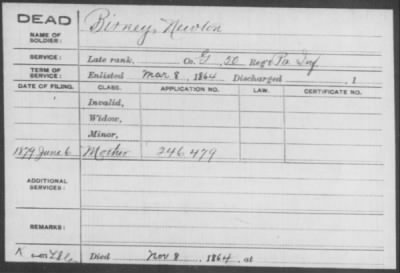 DEAD
NAME OF SOLDIER: Birney, Newton
SERVICE: Late rank, Co. G, Reg't Pa Inf
TERM OF SERVICE: Enlisted Mar 8, 1864 Discharged , 1
DATE OF FILING. CLASS. APPLICATION NO. LAW. CERTIFICATE NO.
Invalid,
Widow,
Minor,
1879 June 6 Mother 246,479
ADDITIONAL SERVICES:
REMARKS:
K Died Nov 8, 1864, at